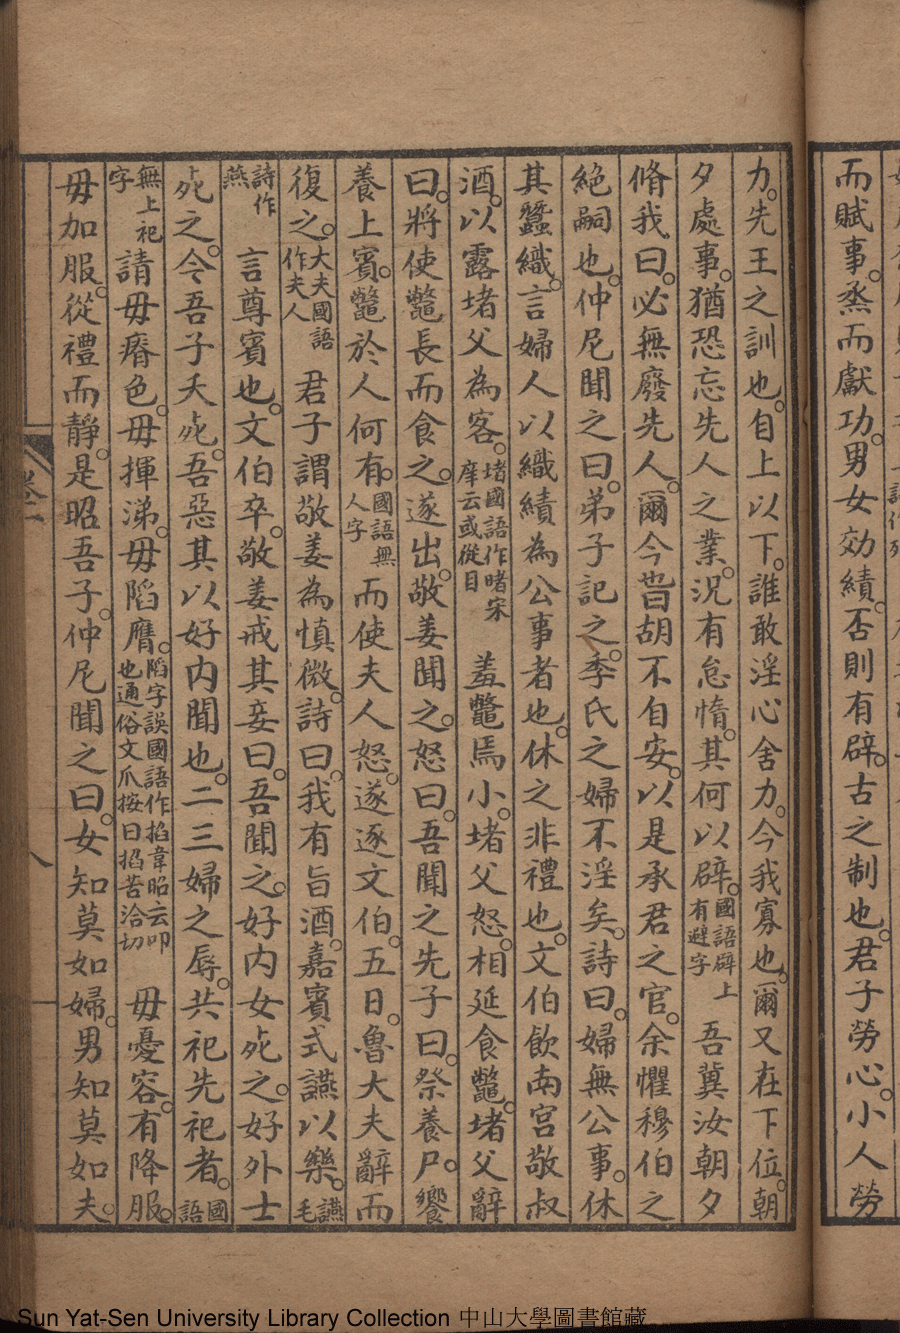 而賦事。烝而獻功。男女効績。否則有辟。古之制也。君子勞心。小人勞
力。先王之訓也。自上以下。誰敢淫心舍力。今我寡也。爾又在下位。朝
夕處事。猶恐忘先人之業。況有怠惰。其何以辟。國語辟上有避字吾冀汝朝夕
脩我曰。必無廢先人。爾今㫖胡不自安。以是承君之官。余懼穆伯之
絕嗣也。仲尼聞之曰。弟子記之。季氏之婦不淫矣。詩曰。婦無公事。休
其蠶織。言婦人以織績為公事者也。休之非禮也。文伯飲南宮敬叔
酒。以露堵父為客。堵國語作睹宋庠云或從目羞鼈焉小。堵父怒。相延食鼈。堵父辭
曰。將使鼈長而食之。遂出。敬姜聞之。怒曰。吾聞之先子曰。祭養尸。饗
養上賓。鼈於人何有。國語無人字而使夫人怒。遂逐文伯。五日。魯大夫辭而
復之。大夫國語作夫人君子謂敬姜為慎微。詩曰。我有旨酒。嘉賓式讌以樂。讌毛
詩作燕言尊賓也。文伯卒。敬姜戒其妾曰。吾聞之。好內女死之。好外士
死之。今吾子夭死。吾惡其以好內聞也。二三婦之辱。共祀先祀者。國語
無上祀字請毋瘠色。毋揮涕。毋陷膺。陷字誤國語作掐韋昭云叩也通俗文爪按曰掐苦洽切毋憂容。有降服。
毋加服。從禮而靜。是昭吾子。仲尼聞之曰。女知莫如婦。男知莫如夫。
八
Sun Yat-Sen University Library Collection 中山大學圖書館藏